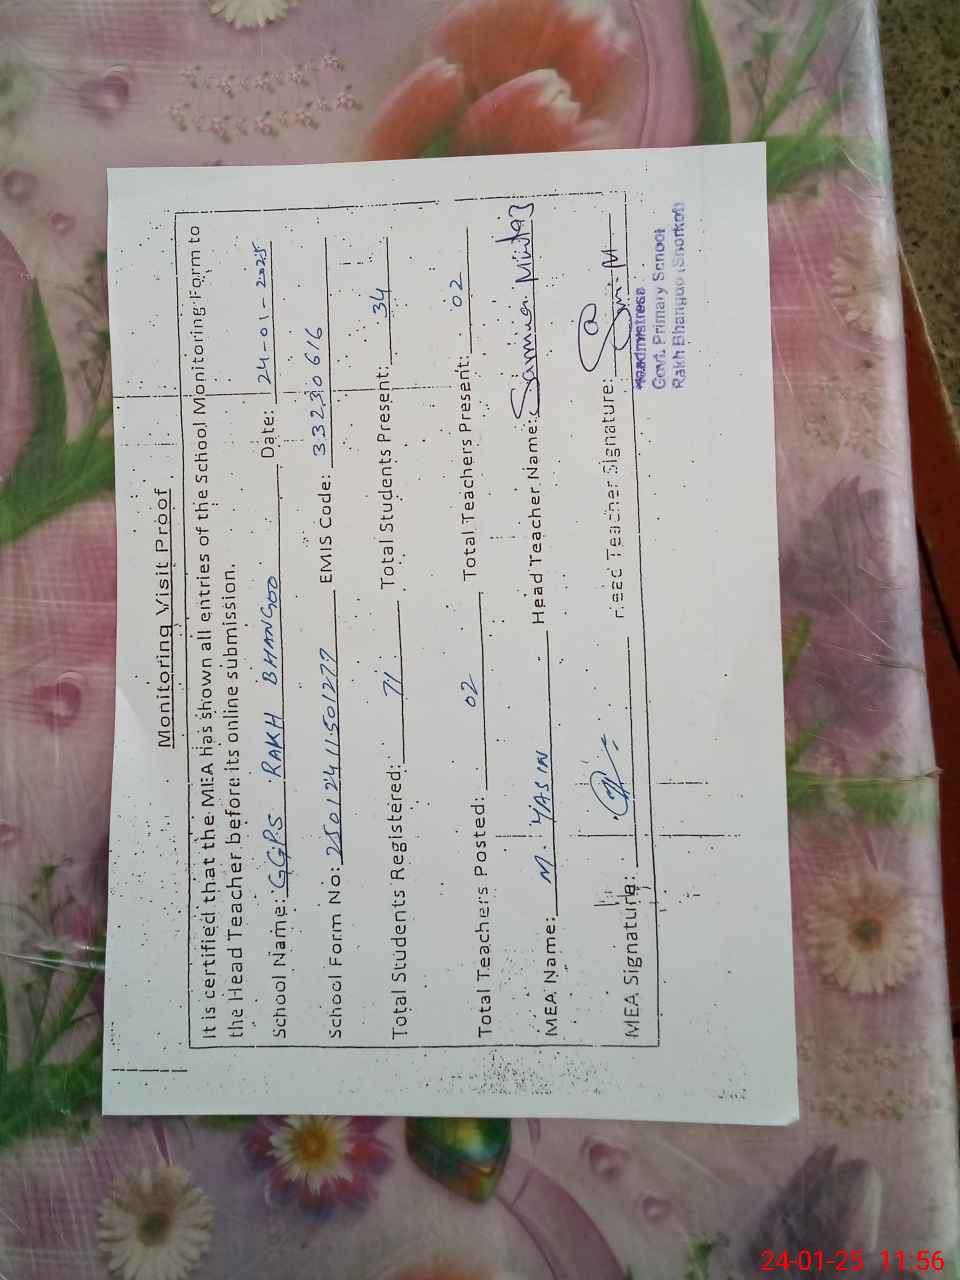 Monitoring Visit Proof
It is certified that the MEA has shown all entries of the School Monitoring Form to
the Head Teacher before its online submission.
School Name: GGPS RAKH BHANGOO Date: 24-01-2025
School Form No: 25012411501277 EMIS Code: 33230616
Total Students Registered: 71 Total Students Present: 34
Total Teachers Posted: 02 Total Teachers Present: 02
MEA Name: M. YASIN Head Teacher Name: Samina Mumtaz
MEA Signature: Head Teacher Signature:
Headmistress
Govt. Primary School
Rakh Bhangoo (Shorkot)
24-01-25 11:56